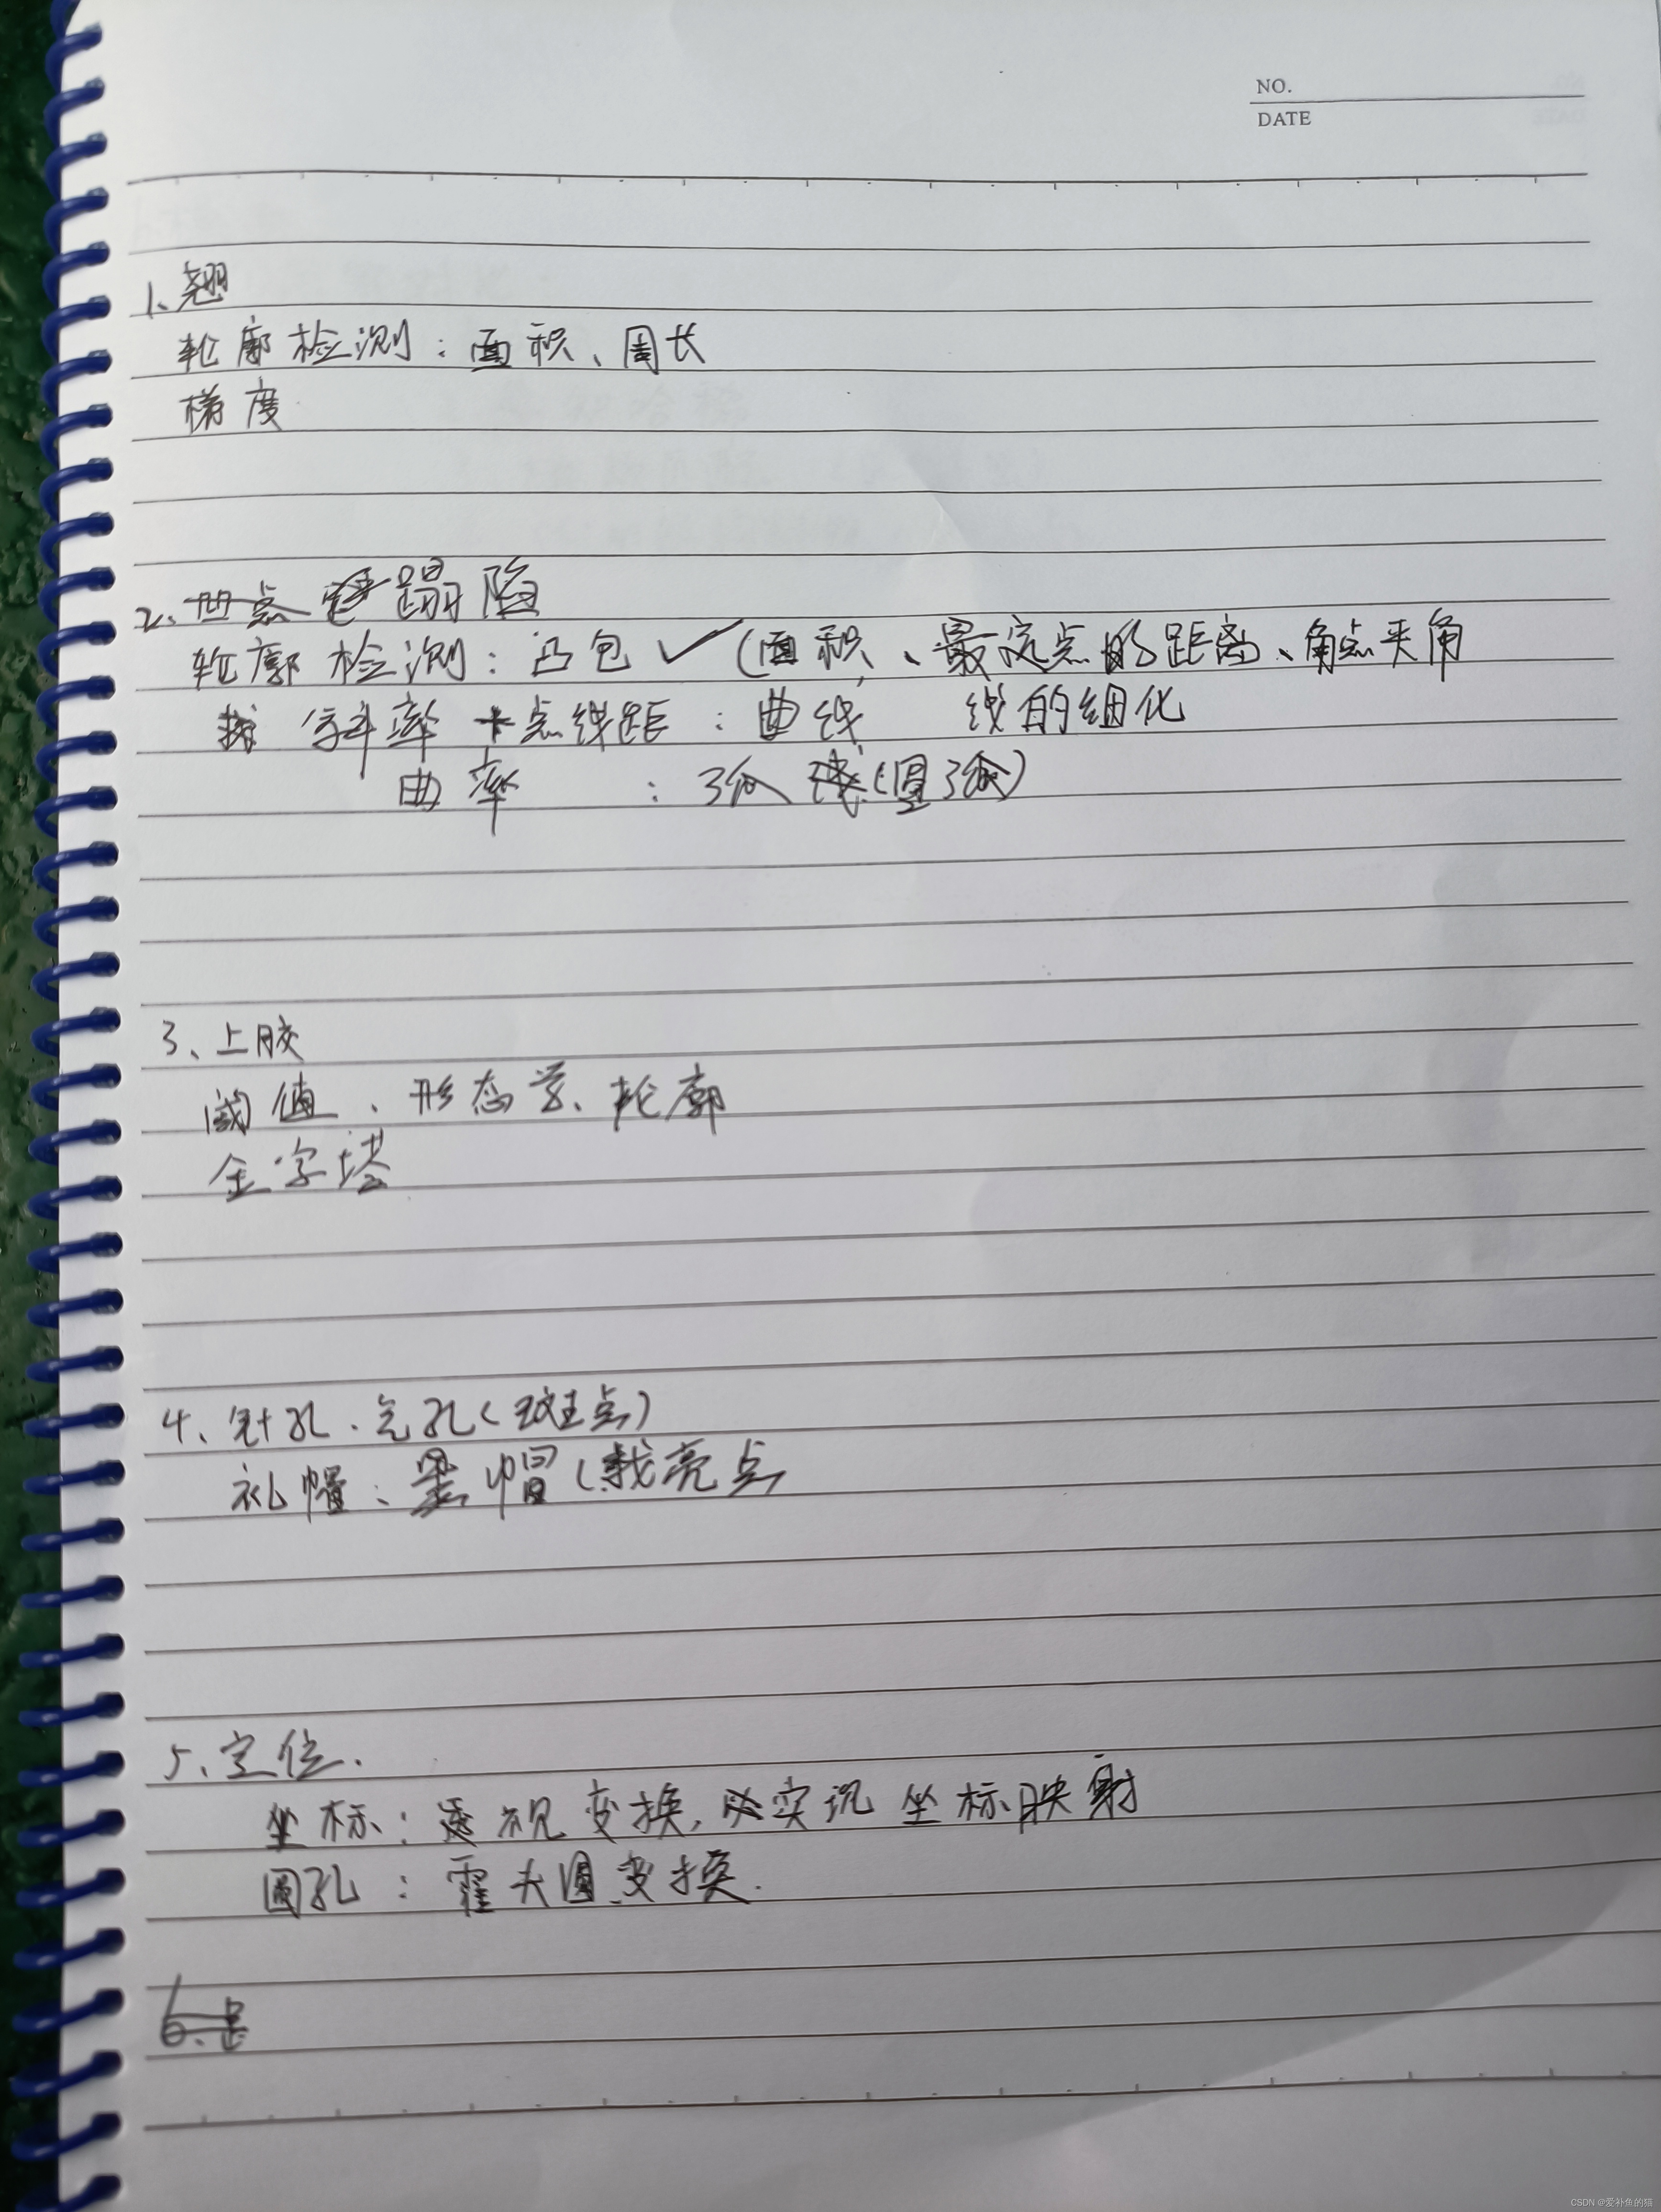 NO.
DATE
1、翘
轮廓检测：面积、周长
梯度
2、凹点 塌陷
轮廓检测：凸包✓(面积、最远点的距离、角点夹角
斜率+点线距：曲线 线的细化
曲率：弧线(圆弧)
3、上胶
阈值、形态学、轮廓
金字塔
4、针孔、气孔(斑点)
礼帽、黑帽(找亮点
5、定位.
坐标：透视变换,实现坐标映射
圆孔：霍夫圆变换.
6、
CSDN @爱补鱼的猫